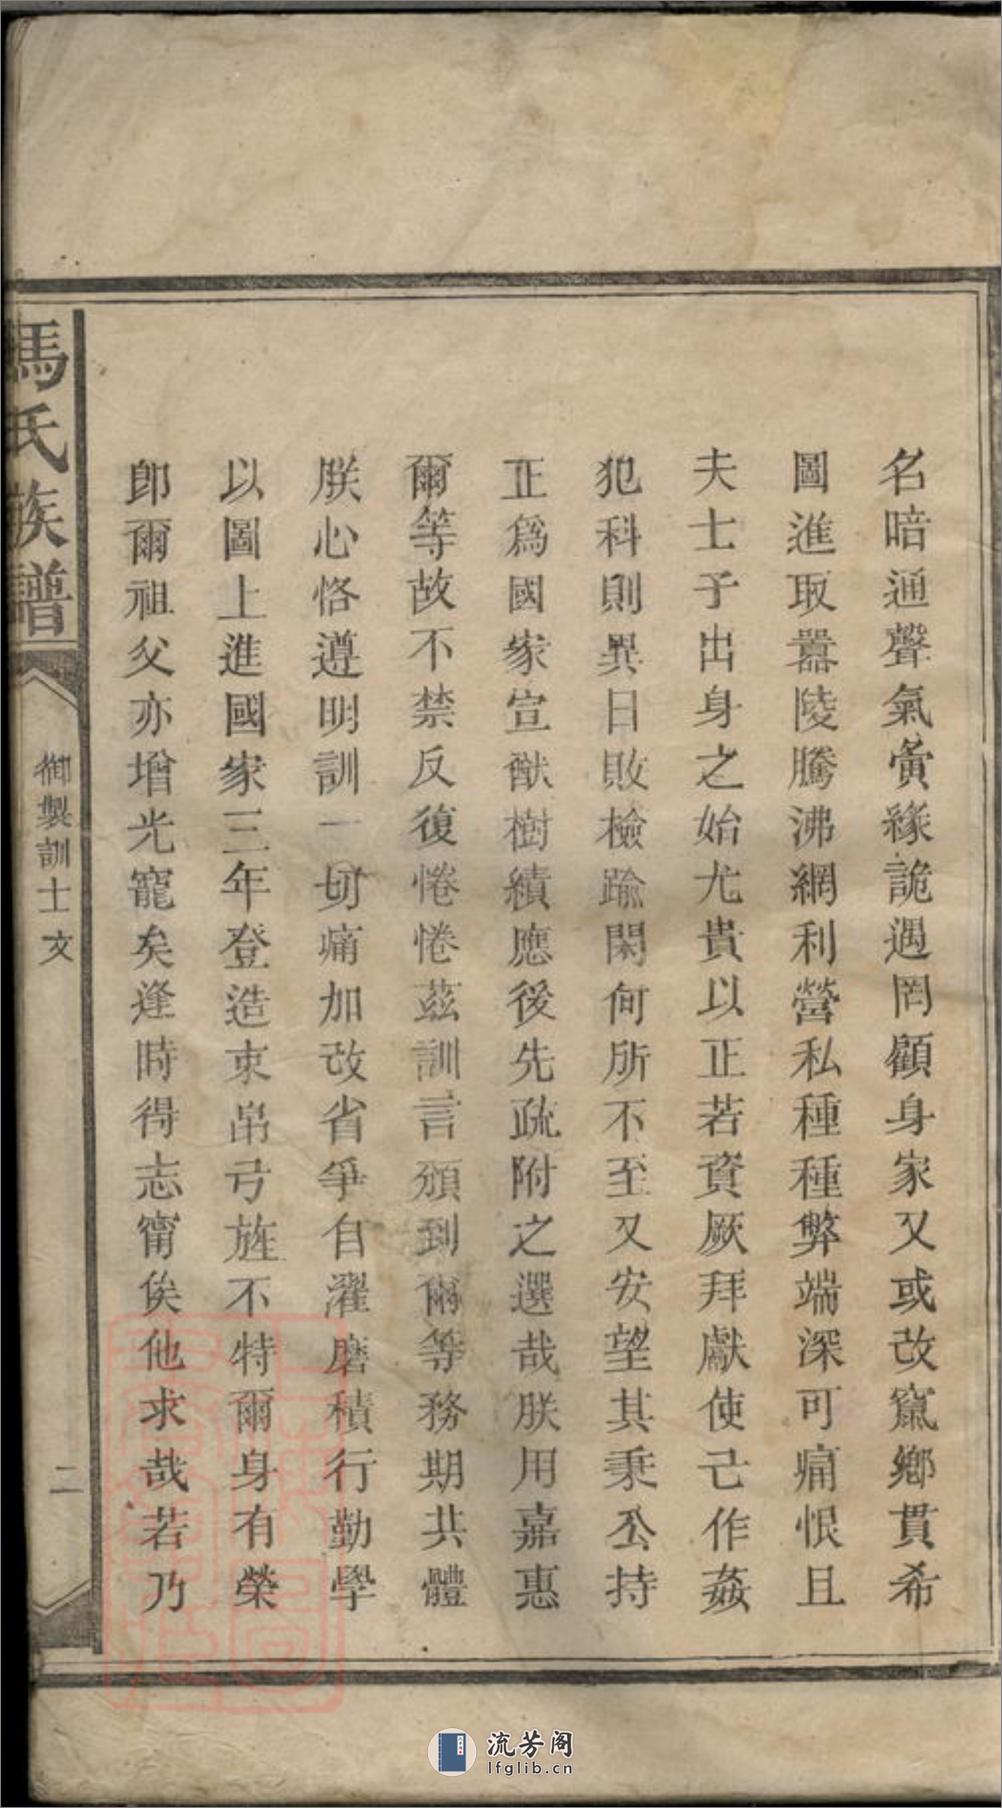 名暗通聲氣夤緣詭遇罔顧身家又或改竄鄉貫希
圖進取囂陵騰沸網利營私種種弊端深可痛恨且
夫士子出身之始尤貴以正若資厥拜獻使己作姦
犯科則異日敗檢踰閑何所不至又安望其秉公持
正爲國家宣猷樹績應後先疏附之選哉朕用嘉惠
爾等故不禁反復惓惓茲訓言頒到爾等務期共體
朕心恪遵明訓一切痛加改省爭自濯磨積行勤學
以圖上進國家三年登造束帛弓旌不特爾身有榮
即爾祖父亦增光寵矣逢時得志甯俟他求哉若乃
馬氏族譜
御製訓士文
二
流芳阁
lfglib.cn